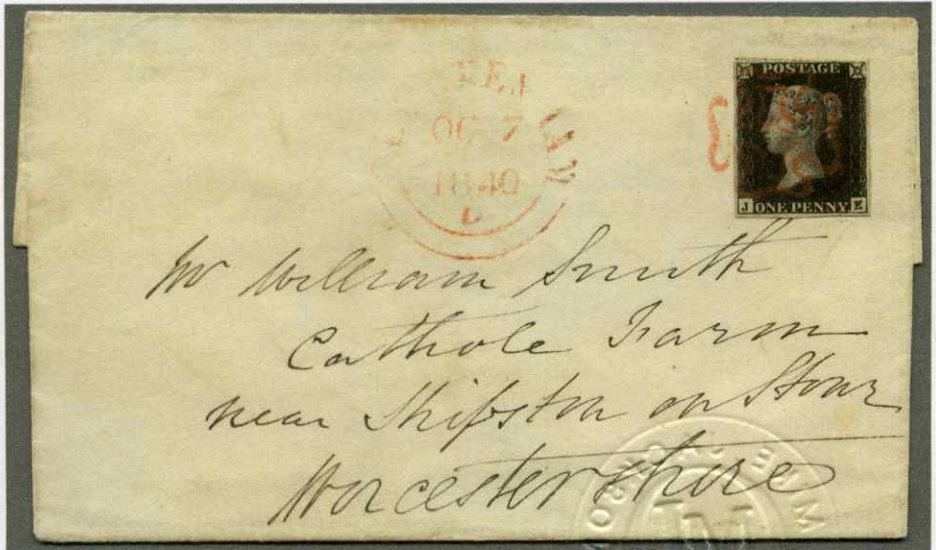 POSTAGE
J ONE PENNY E
OC 7
1840
Mr William Smith
Cathole Farm
near Shipston on Stour
Worcestershire